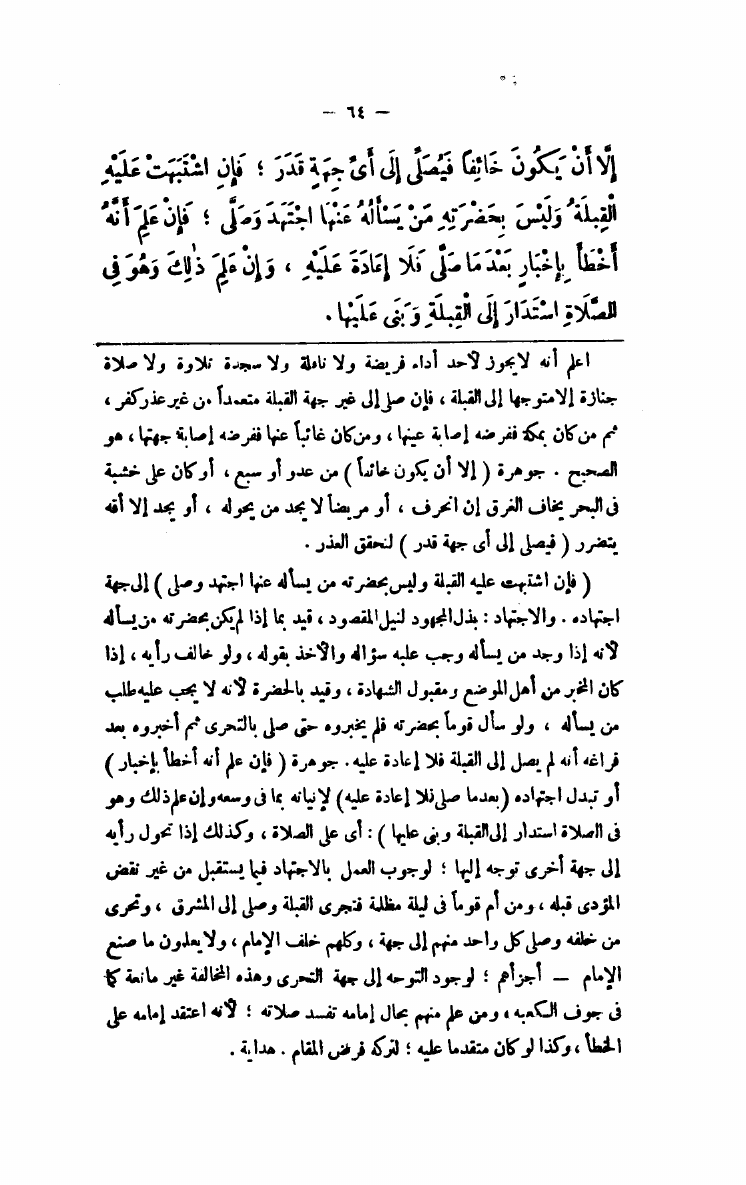 — ٦٤ —
إِلَّا أَنْ يَكُونَ خَائِفًا فَيُصَلِّى إِلَى أَىِّ جِهَةٍ قَدَرَ ؛ فَإِنِ اشْتَبَهَتْ عَلَيْهِ
الْقِبْلَةُ وَلَيْسَ بِحَضْرَتِهِ مَنْ يَسْأَلُهُ عَنْهَا اجْتَهَدَ وَصَلَّى ؛ فَإِنْ عَلِمَ أَنَّهُ
أَخْطَأَ بِإِخْبَارٍ بَعْدَمَا صَلَّى فَلَا إِعَادَةَ عَلَيْهِ ، وَإِنْ عَلِمَ ذٰلِكَ وَهُوَ فِى
الصَّلَاةِ اسْتَدَارَ إِلَى الْقِبْلَةِ وَبَنَى عَلَيْهَا .
اعلم أنه لايجوز لأحد أداء فريضة ولا نافلة ولا سجدة تلاوة ولا صلاة
جنازة إلامتوجها إلى القبلة ، فإن صلى إلى غير جهة القبلة متعمداً من غير عذر كفر ،
ثم من كان بمكة ففرضه إصابة عينها ، ومن كان غائباً عنها ففرضه إصابة جهتها ، هو
الصحيح . جوهرة ( إلا أن يكون خائفاً ) من عدو أو سبع ، أو كان على خشبة
فى البحر يخاف الغرق إن انحرف ، أو مريضاً لا يجد من يحوله ، أو يجد إلا أنه
يتضرر ( فيصلى إلى أى جهة قدر ) لتحقق العذر .
( فإن اشتبهت عليه القبلة وليس بحضرته من يسأله عنها اجتهد وصلى ) إلى جهة
اجتهاده . والاجتهاد : بذل المجهود لنيل المقصود ، قيد بما إذا لم يكن بحضرته من يسأله
لأنه إذا وجد من يسأله وجب عليه سؤاله والأخذ بقوله ، ولو خالف رأيه ، إذا
كان المخبر من أهل الموضع ومقبول الشهادة ، وقيد بالحضرة لأنه لا يجب عليه طلب
من يسأله ، ولو سأل قوماً بحضرته فلم يخبروه حتى صلى بالتحرى ثم أخبروه بعد
فراغه أنه لم يصل إلى القبلة فلا إعادة عليه . جوهرة ( فإن علم أنه أخطأ بإخبار )
أو تبدل اجتهاده (بعدما صلى فلا إعادة عليه) لإتيانه بما فى وسعه وإن علم ذلك وهو
فى الصلاة استدار إلى القبلة وبنى عليها ) : أى على الصلاة ، وكذلك إذا تحول رأيه
إلى جهة أخرى توجه إليها ؛ لوجوب العمل بالاجتهاد فيما يستقبل من غير نقض
المؤدى قبله ، ومن أم قوماً فى ليلة مظلمة فتحرى القبلة وصلى إلى المشرق ، وتحرى
من خلفه وصلى كل واحد منهم إلى جهة ، وكلهم خلف الإمام ، ولا يعلمون ما صنع
الإمام — أجزأهم ؛ لوجود التوجه إلى جهة التحرى وهذه المخالفة غير مانعة كما
فى جوف الكعبه ، ومن علم منهم بحال إمامه تفسد صلاته ؛ لأنه اعتقد إمامه على
الخطأ ، وكذا لو كان متقدما عليه ؛ لتركه فرض المقام . هداية .